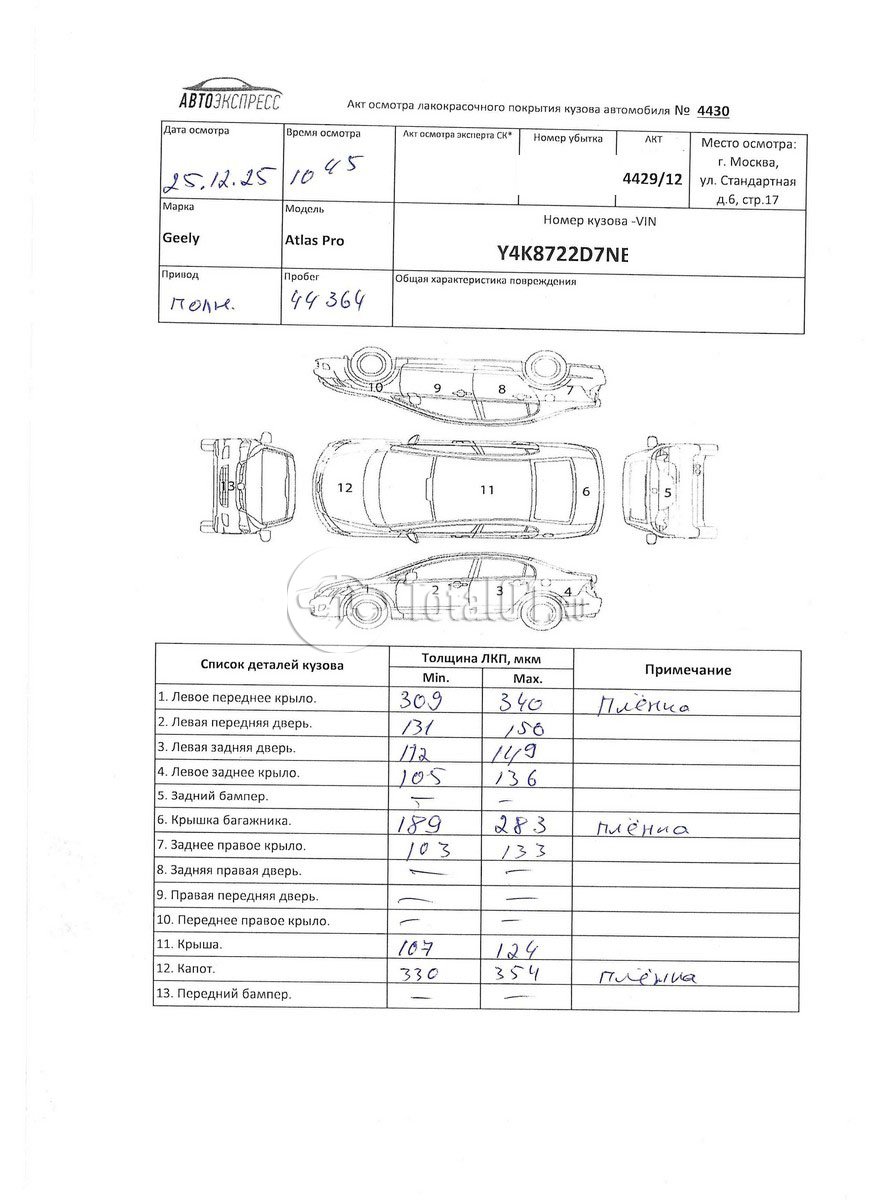 АВТОЭКСПРЕСС
Акт осмотра лакокрасочного покрытия кузова автомобиля № 4430
Дата осмотра Время осмотра Акт осмотра эксперта СК* Номер убытка АКТ Место осмотра:
г. Москва,
25.12.25 10 45 4429/12 ул. Стандартная
д.6, стр.17
Марка Модель Номер кузова -VIN
Geely Atlas Pro Y4K8722D7NE
Привод Пробег Общая характеристика повреждения
полн. 44 364
10 9 8 7
13 12 11 6 5
1 2 3 4
Список деталей кузова Толщина ЛКП, мкм Примечание
Min. Max.
1. Левое переднее крыло. 309 340 Плёнка
2. Левая передняя дверь. 131 150
3. Левая задняя дверь. 112 149
4. Левое заднее крыло. 105 136
5. Задний бампер. — —
6. Крышка багажника. 189 283 плёнка
7. Заднее правое крыло. 103 133
8. Задняя правая дверь. — —
9. Правая передняя дверь. — —
10. Переднее правое крыло. — —
11. Крыша. 107 124
12. Капот. 330 354 плёнка
13. Передний бампер. — —